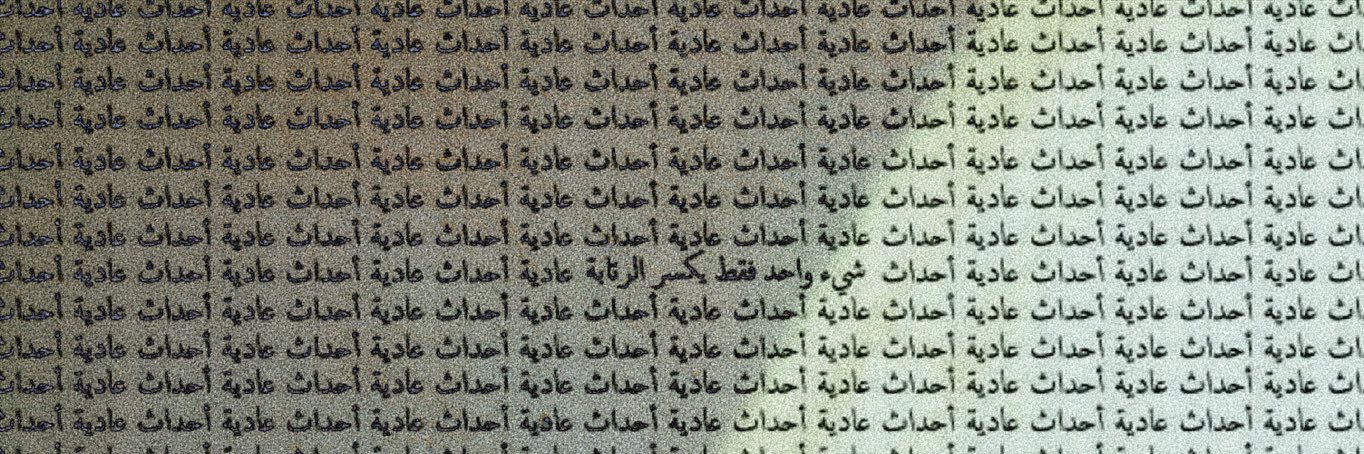 عادية أحداث عادية أحداث عادية أحداث عادية أحداث عادية أحداث عادية أحداث عادية أحداث عادية أحداث عادية أحداث
عادية أحداث عادية أحداث عادية أحداث عادية أحداث عادية أحداث عادية أحداث عادية أحداث عادية أحداث عادية أحداث
عادية أحداث عادية أحداث عادية أحداث عادية أحداث عادية أحداث عادية أحداث عادية أحداث عادية أحداث عادية أحداث
عادية أحداث عادية أحداث عادية أحداث عادية أحداث عادية أحداث عادية أحداث عادية أحداث عادية أحداث عادية أحداث
عادية أحداث عادية أحداث عادية أحداث عادية أحداث عادية أحداث عادية أحداث عادية أحداث عادية أحداث عادية أحداث
عادية أحداث عادية أحداث عادية أحداث عادية أحداث عادية أحداث عادية أحداث عادية أحداث عادية أحداث عادية أحداث
عادية أحداث عادية أحداث عادية أحداث عادية أحداث عادية أحداث عادية أحداث عادية أحداث عادية أحداث عادية أحداث
عادية أحداث عادية أحداث عادية أحداث شيء واحد فقط يكسر الرتابة عادية أحداث عادية أحداث عادية أحداث عادية أحداث
عادية أحداث عادية أحداث عادية أحداث عادية أحداث عادية أحداث عادية أحداث عادية أحداث عادية أحداث عادية أحداث
عادية أحداث عادية أحداث عادية أحداث عادية أحداث عادية أحداث عادية أحداث عادية أحداث عادية أحداث عادية أحداث
عادية أحداث عادية أحداث عادية أحداث عادية أحداث عادية أحداث عادية أحداث عادية أحداث عادية أحداث عادية أحداث
عادية أحداث عادية أحداث عادية أحداث عادية أحداث عادية أحداث عادية أحداث عادية أحداث عادية أحداث عادية أحداث